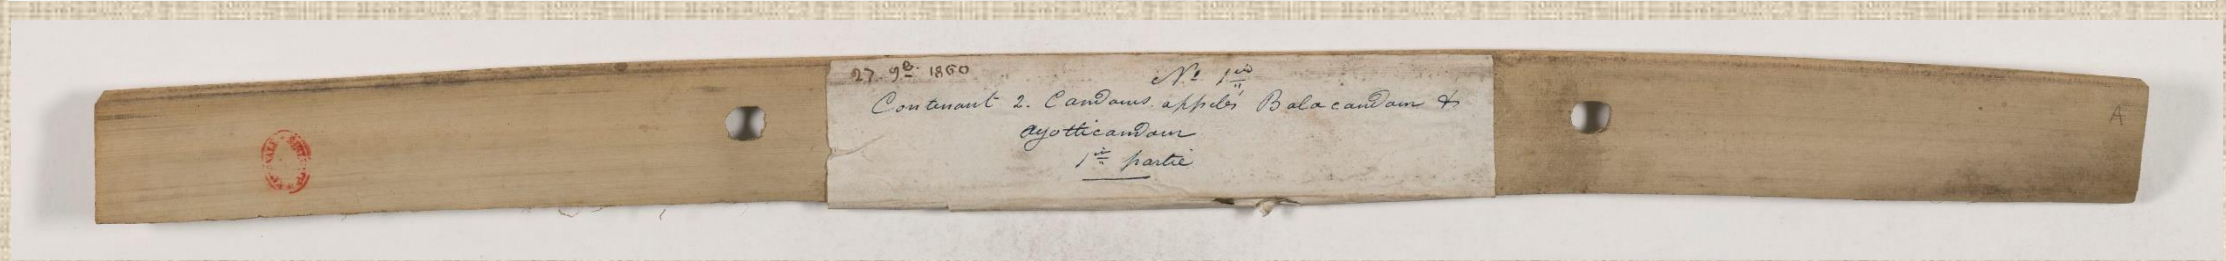 27 9e 1860
No 1er
Contenant 2. Candams appelés Balacandam &
ayotticandam
1ère partie
A